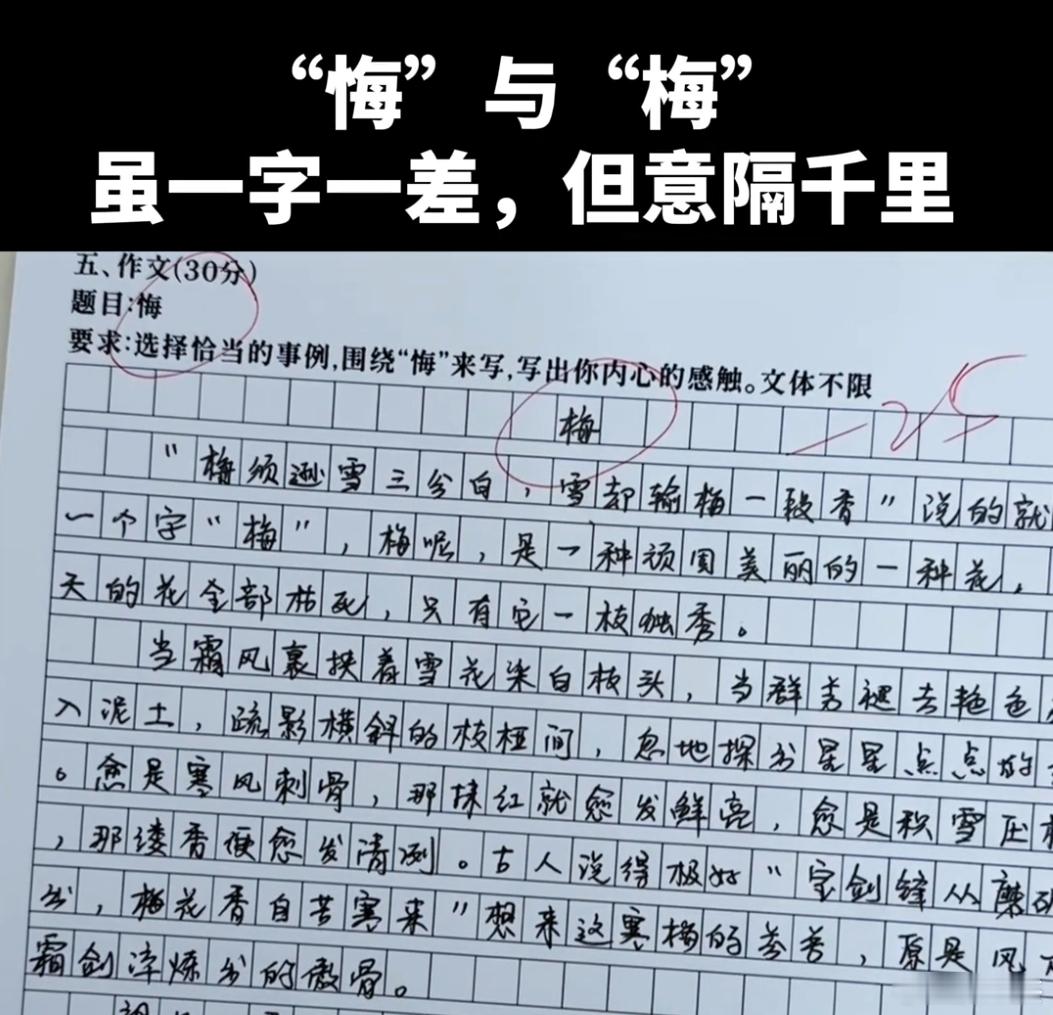 “悔”与“梅”
虽一字一差，但意隔千里
五、作文(30分)
题目:悔
要求:选择恰当的事例,围绕“悔”来写,写出你内心的感触。文体不限
梅
-25
“梅须逊雪三分白，雪却输梅一段香”说的就
一个字“梅”，梅呢，是一种顽固美丽的一种花，
天的花全部枯死，只有它一枝独秀。
当霜风裹挟着雪花染白枝头，当群芳褪去艳色
入泥土，疏影横斜的枝桠间，忽地探出星星点点的
。愈是寒风刺骨，那抹红就愈发鲜亮，愈是积雪压
，那缕香便愈发清冽。古人说得极好“宝剑锋从磨
出，梅花香自苦寒来”想来这寒梅的芬芳，原是风
霜剑淬炼出的傲骨。